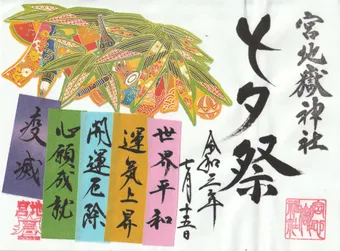 宮地嶽神社
七夕祭
令和三年
七月十五日
世界平和
運気上昇
開運厄除
心願成就
疫滅